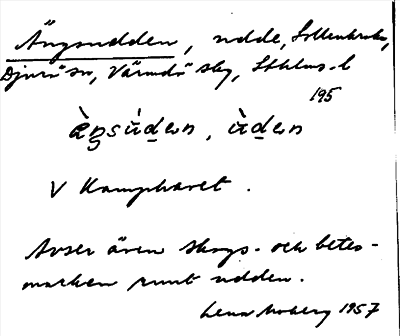 Ängsudden, udde, Sollenkroka,
Djurö sn, Värmdö skg, Sthlms. l
195
ä̀ŋsu̇́dən, ù̇dən
V Kamphavet.
Avser även skogs- och betes-
marken runt udden.
Lena Moberg 1957